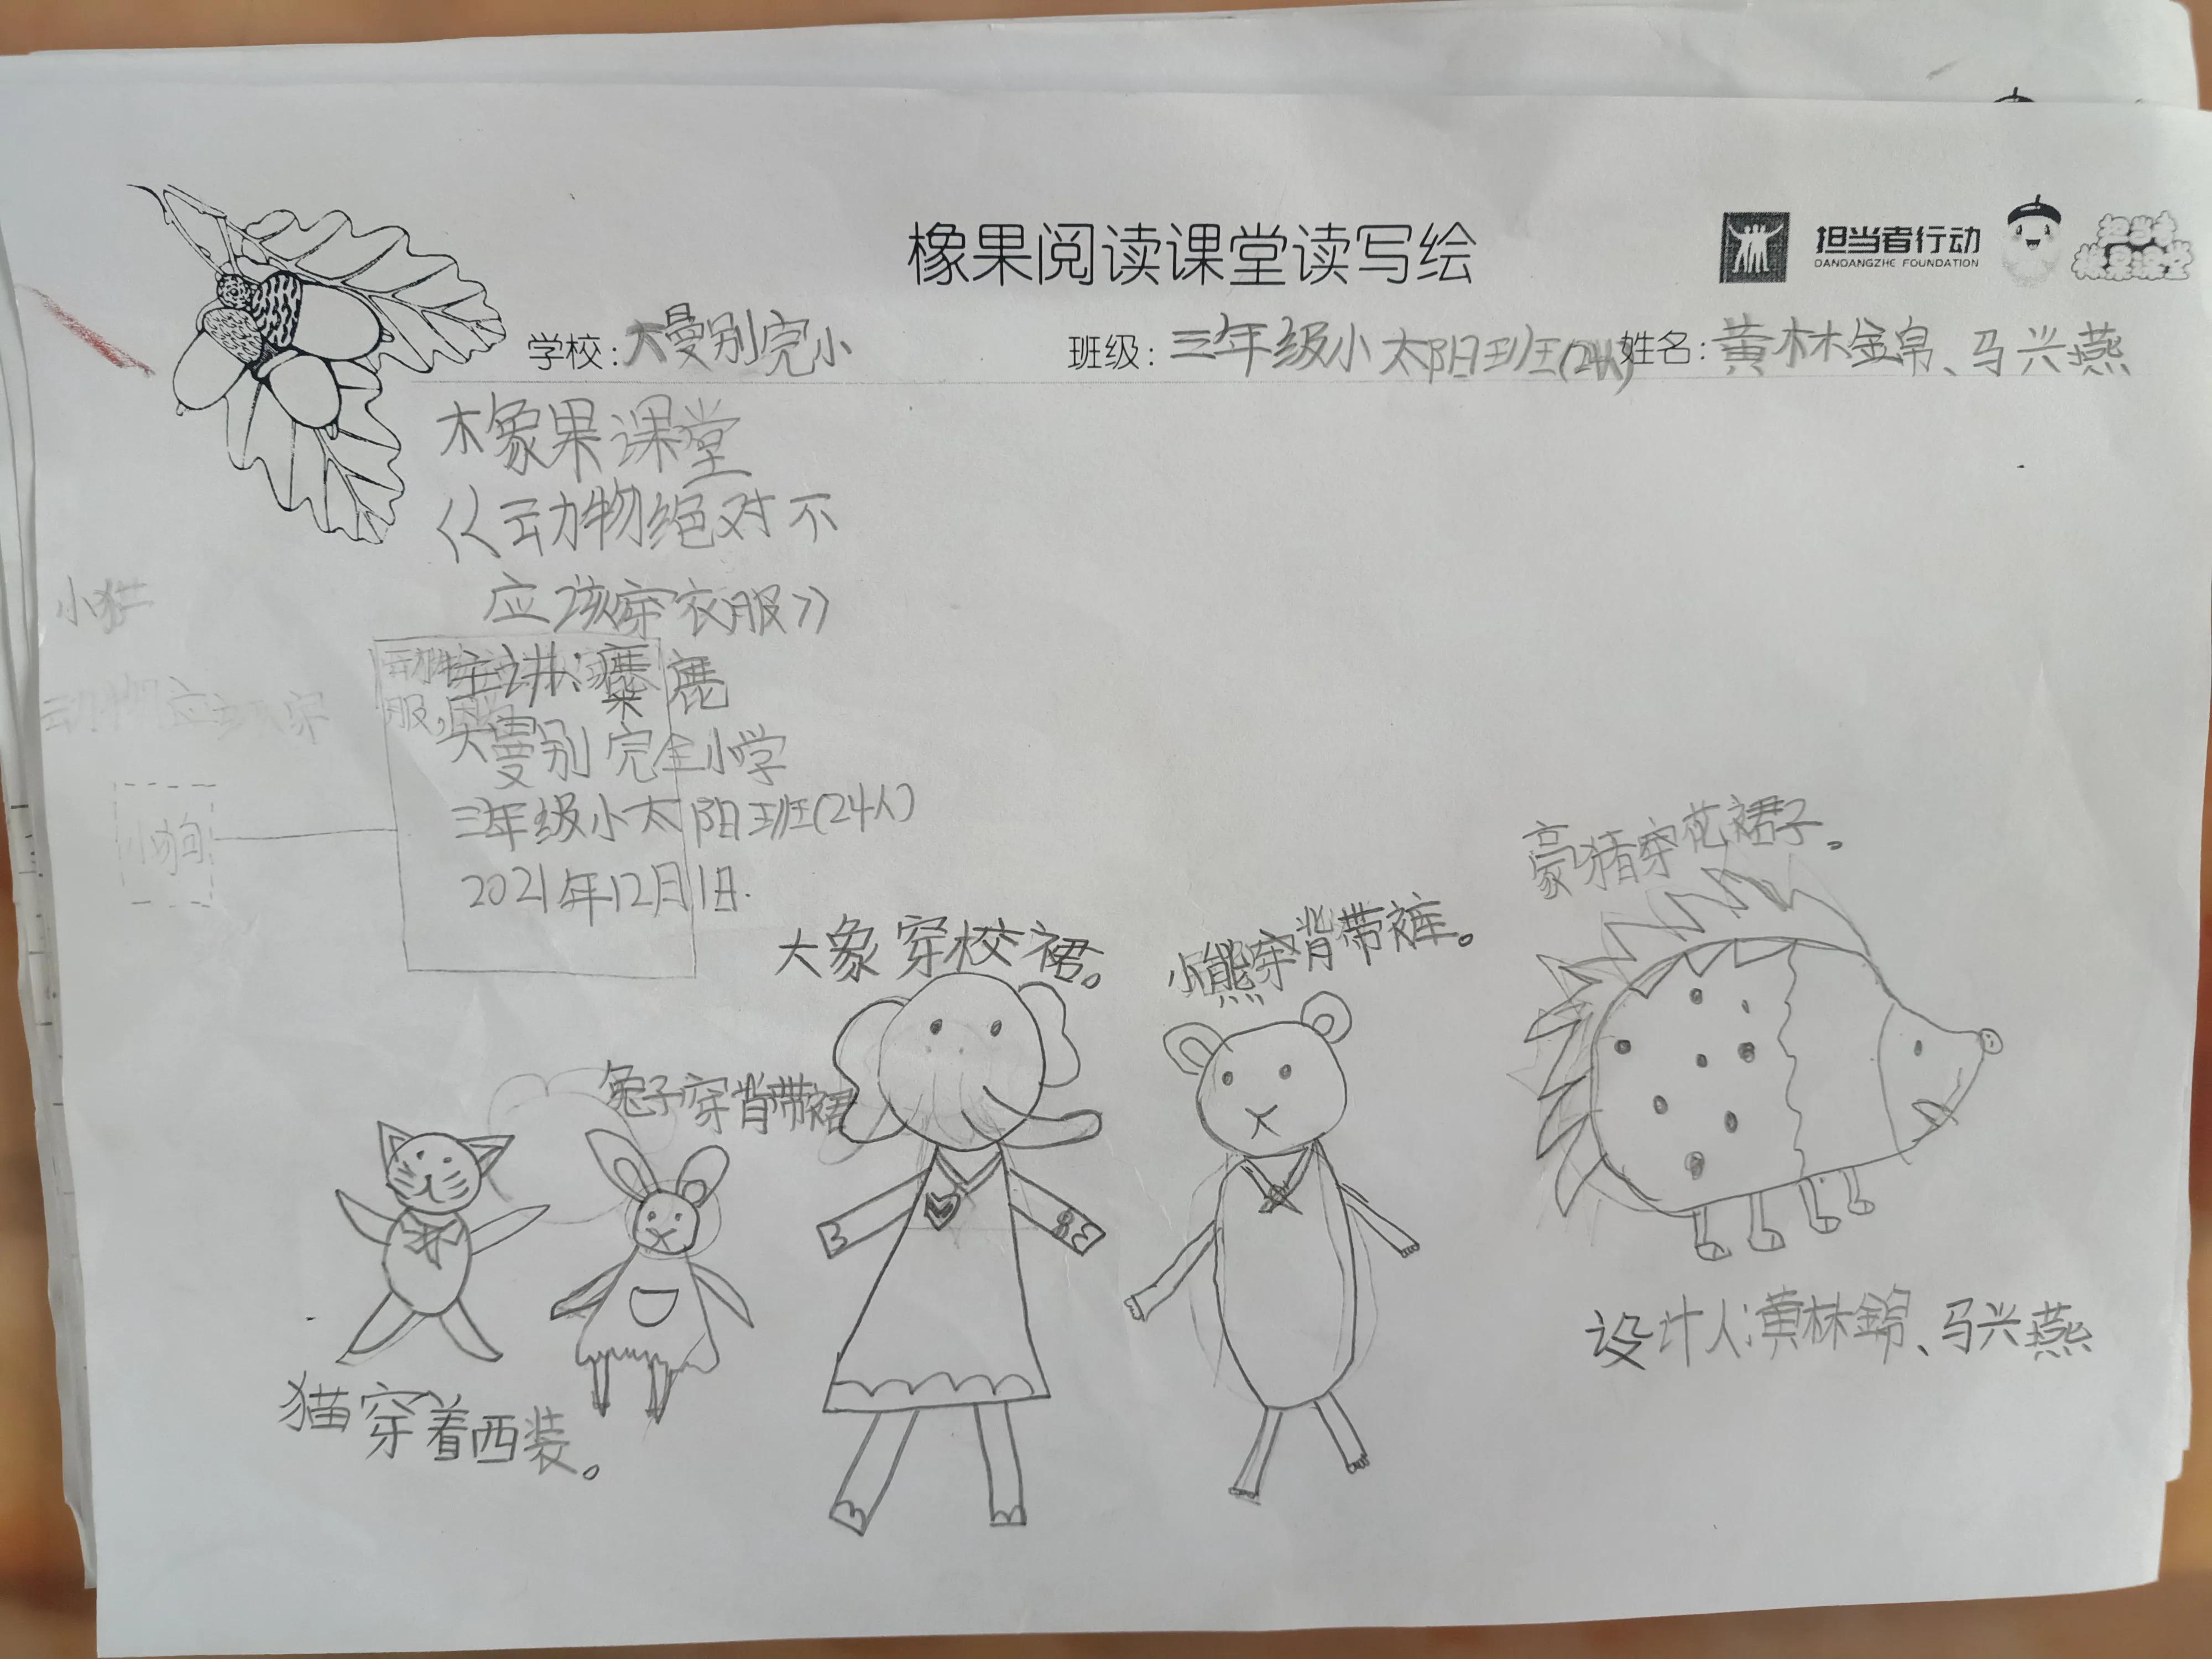 橡果阅读课堂读写绘
担当者行动
DANDANGZHE FOUNDATION
担当者
橡果课堂
学校:大曼别完小
班级:三年级小太阳班(24人)
姓名:黄林锦、马兴燕
橡果课堂
《动物绝对不
应该穿衣服》
主讲:麋鹿
大曼别完全小学
三年级小太阳班(24人)
2021年12月1日.
小猫
小狗
豪猪穿花裙子。
大象穿校裙。
小熊穿背带裤。
兔子穿背带裙
猫穿着西装。
设计人:黄林锦、马兴燕